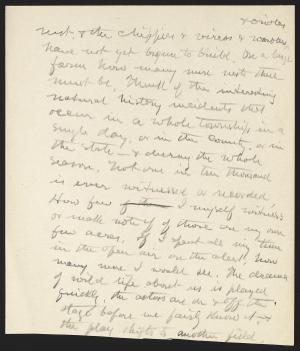 & orioles
nest. & the chippers & vireos & warblers
have not yet begun to build. On a large
farm how many more nests there
must be. Think of the interesting
natural history incidents that
occur in a whole township in a
single day, or in the county, or in
the state — & during the whole
season. Not one in ten thousand
is ever witnessed or recorded
How few of them I myself witness
or make note of of those on my own
few acres. If I spent all my time
in the open air on the alert, how
many more I would see. The drama
of wild life about us is played
quickly, the actors are on & off the
stage before we fairly know it, &
the play shifts to another field